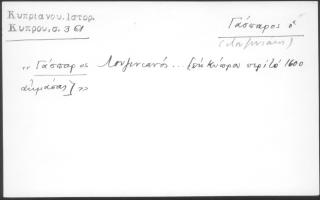 Κυπριανου. Ιστορ.
Κυπρου. σ. 361
Γάσπαρος ὁ
(Λουζινιανός)
„ Γάσπαρος Λουζινιανός... [ἐν Κύπρῳ περὶ τὸ 1600
ἀκμάσας] »